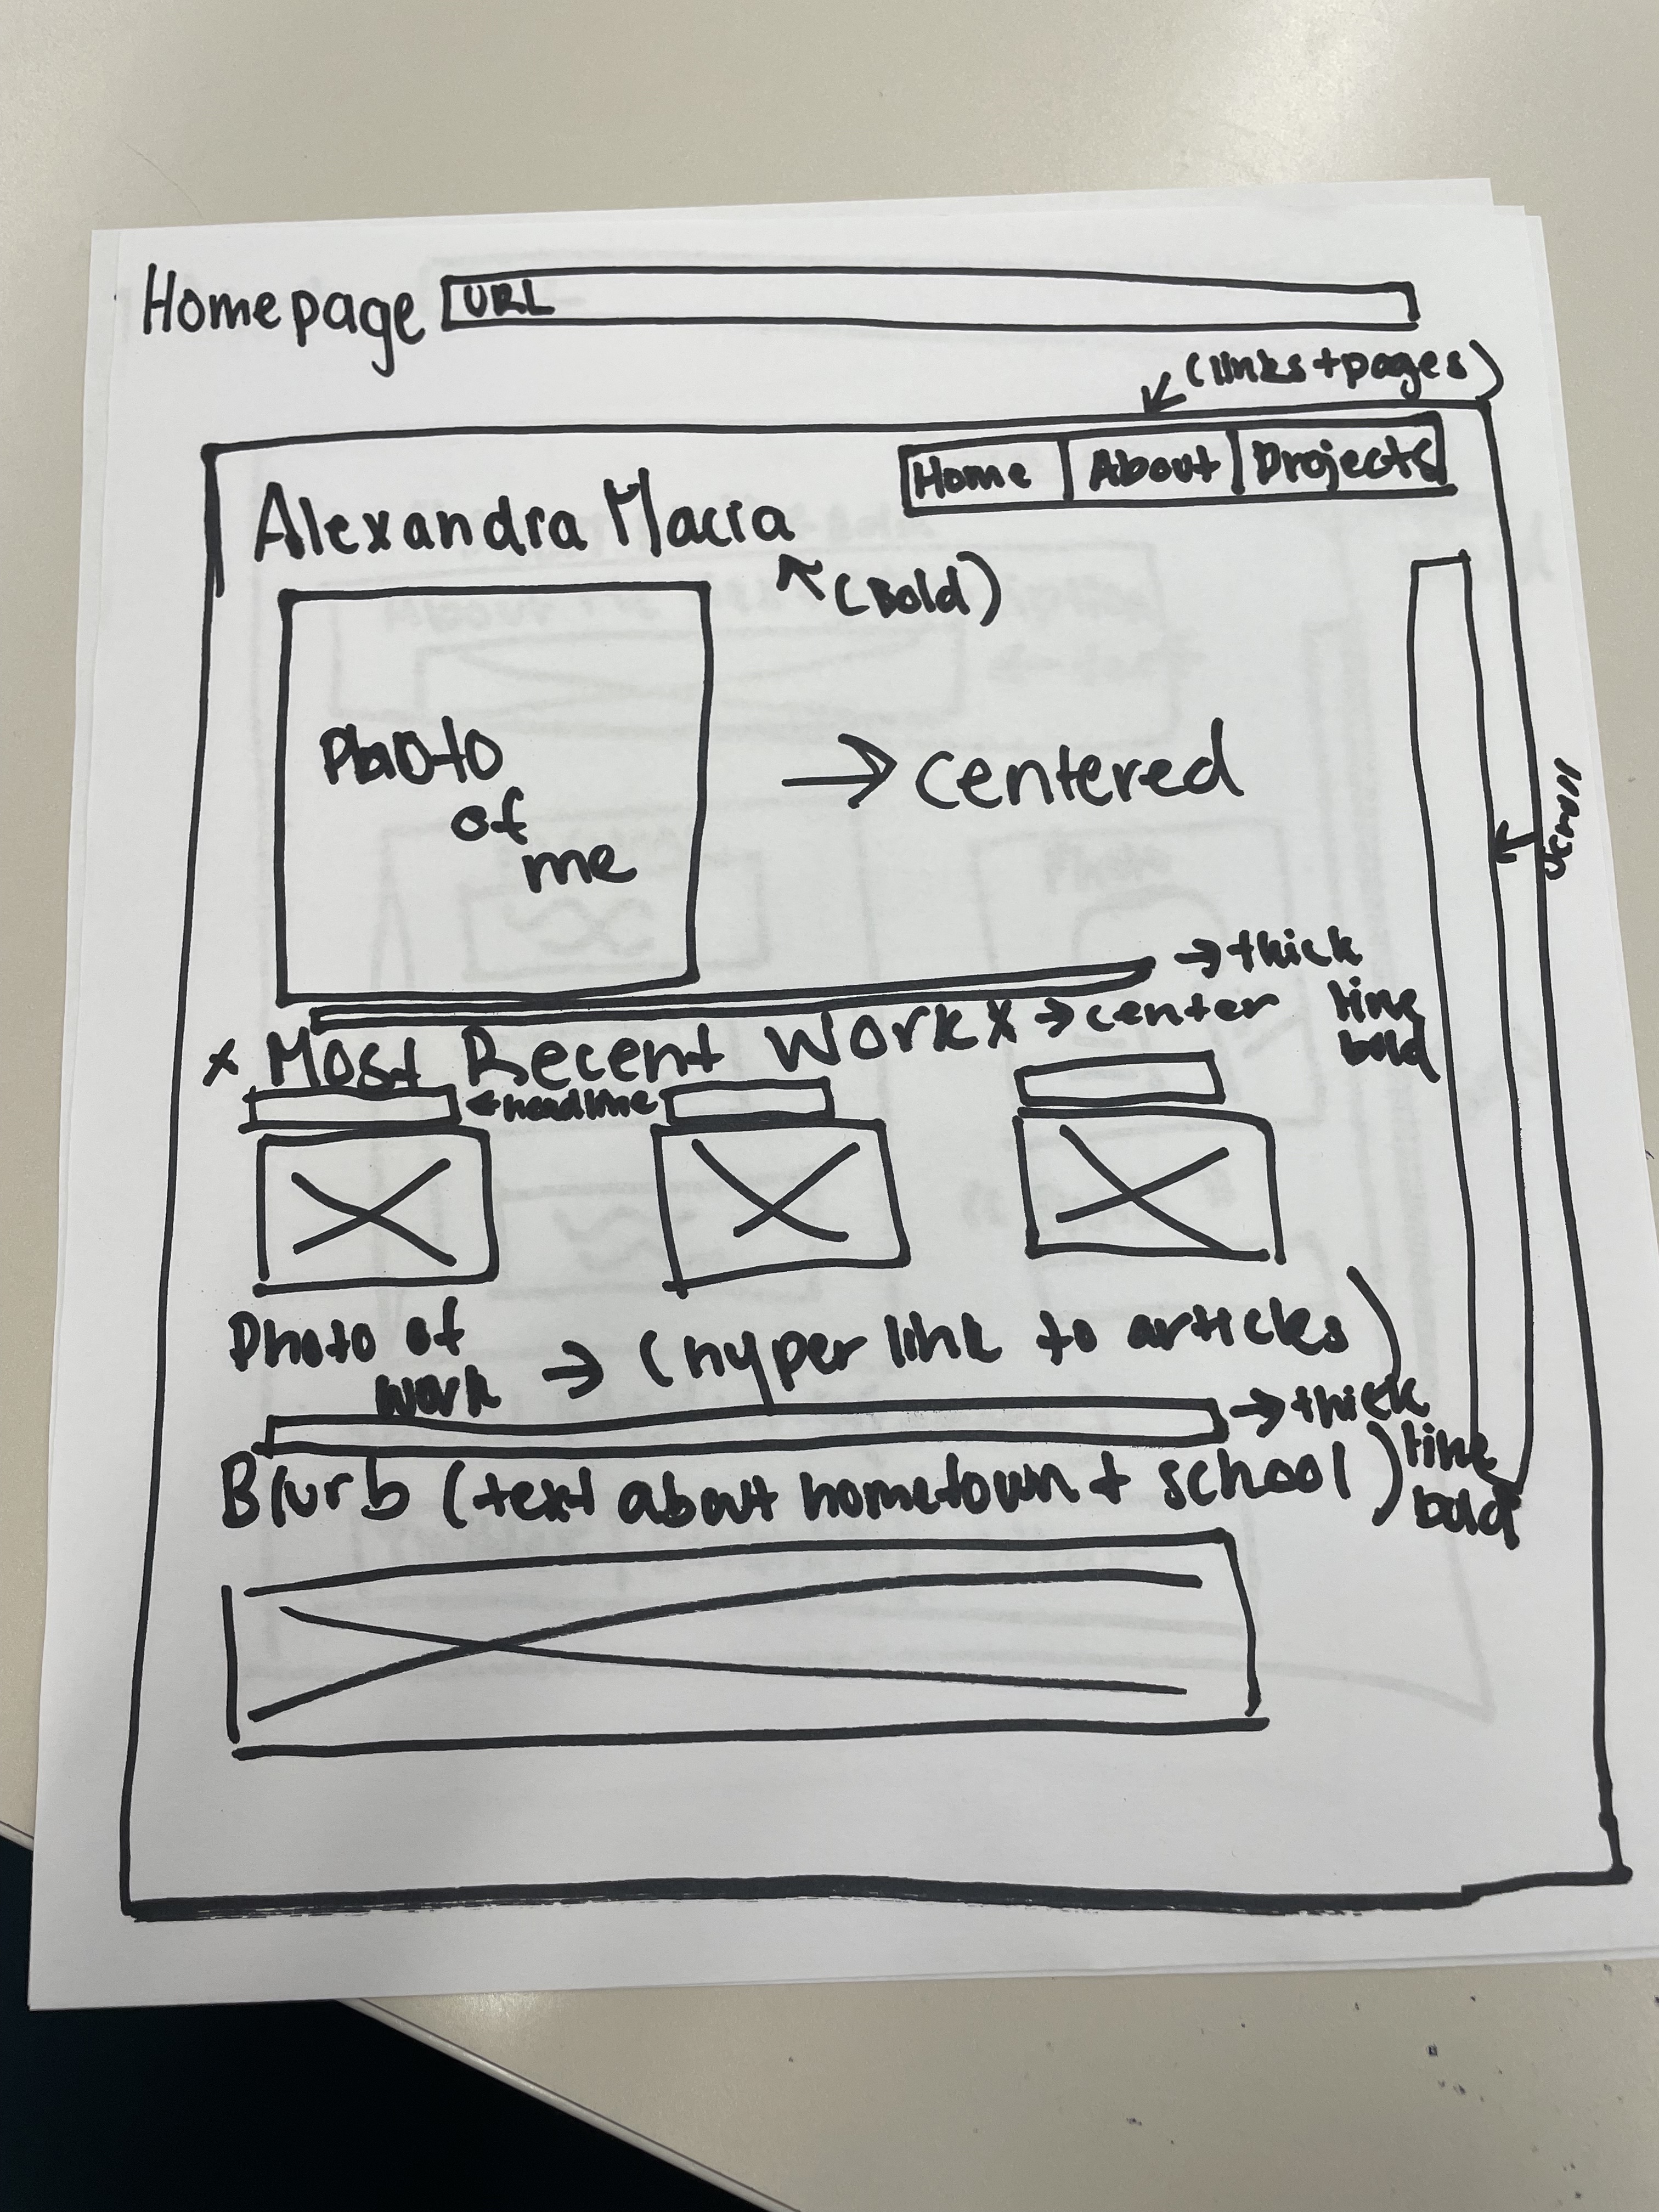 Homepage URL
(links + pages)
Home About Projects
Alexandra Macia
(Bold)
Photo
of
me
→ centered
scroll
→ thick
line
bold
x Most Recent Work x → center
← headline
Photo of
work → (hyper link to articles)
→ thick
line
bold
Blurb (text about hometown + school)